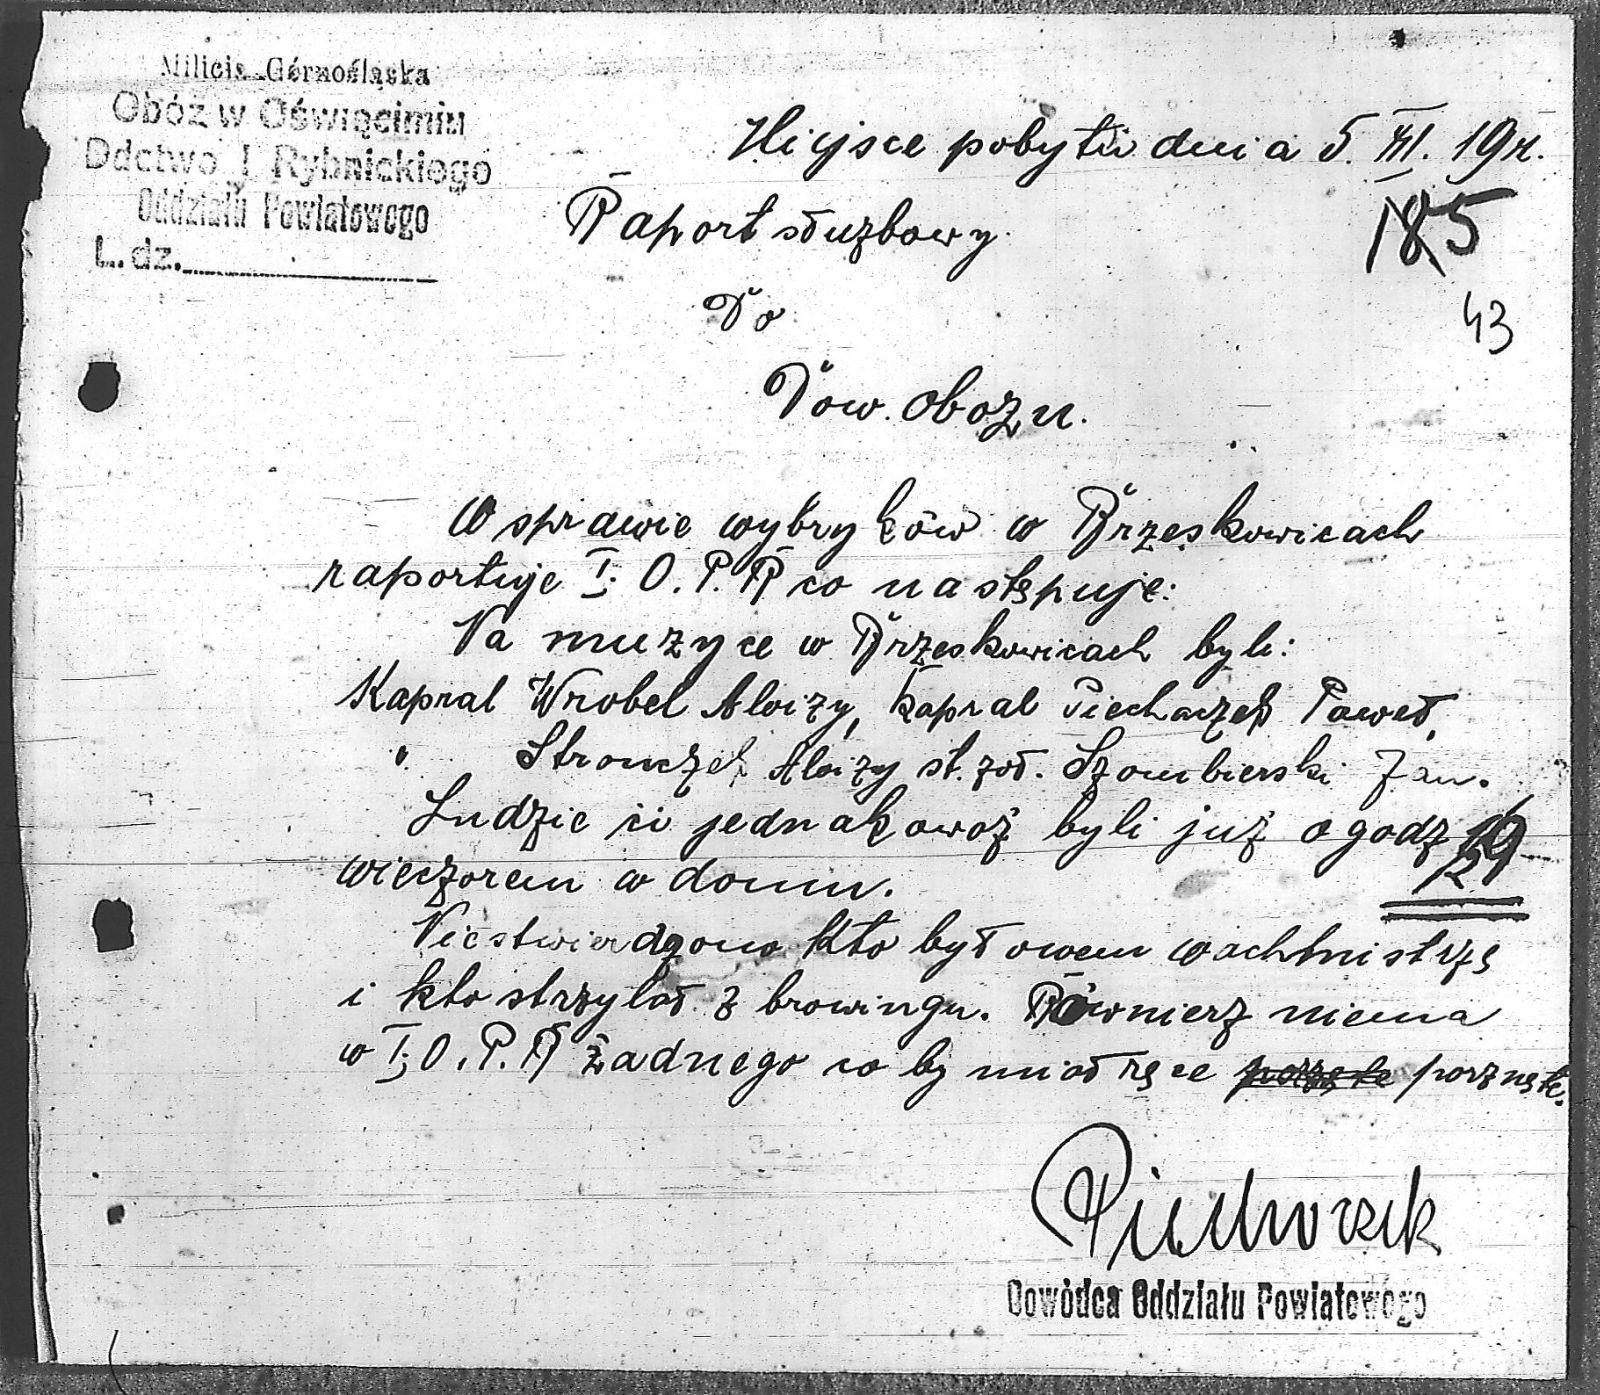 Milicja Górnośląska
Obóz w Oświęcimiu
Ddctwo I Rybnickiego
Oddziału Powiatowego
L. dz.
Miejsce pobytu dnia 5. XII. 19 r.
Raport służbowy.
185
Do
43
Dow. obozu.
W sprawie wybryków w Brzeskowicach
raportuje I. O. P. R co następuje:
Na muzyce w Brzeskowicach byli:
Kapral Wrobel Aloizy, Kapral Piechaczek Paweł,
" Stronczek Aloizy st. żoł. Szombierski Jan.
Ludzie ci jednakowoż byli już o godz
wieczorem w domu.
Niestwierdzono kto był owem wachmistrzę
i kto strzylał z browingu. Równierz niema
w I. O. P. R żadnego co by miał ręce porznęte.
Piechoczek
Dowódca Oddziału Powiatowego